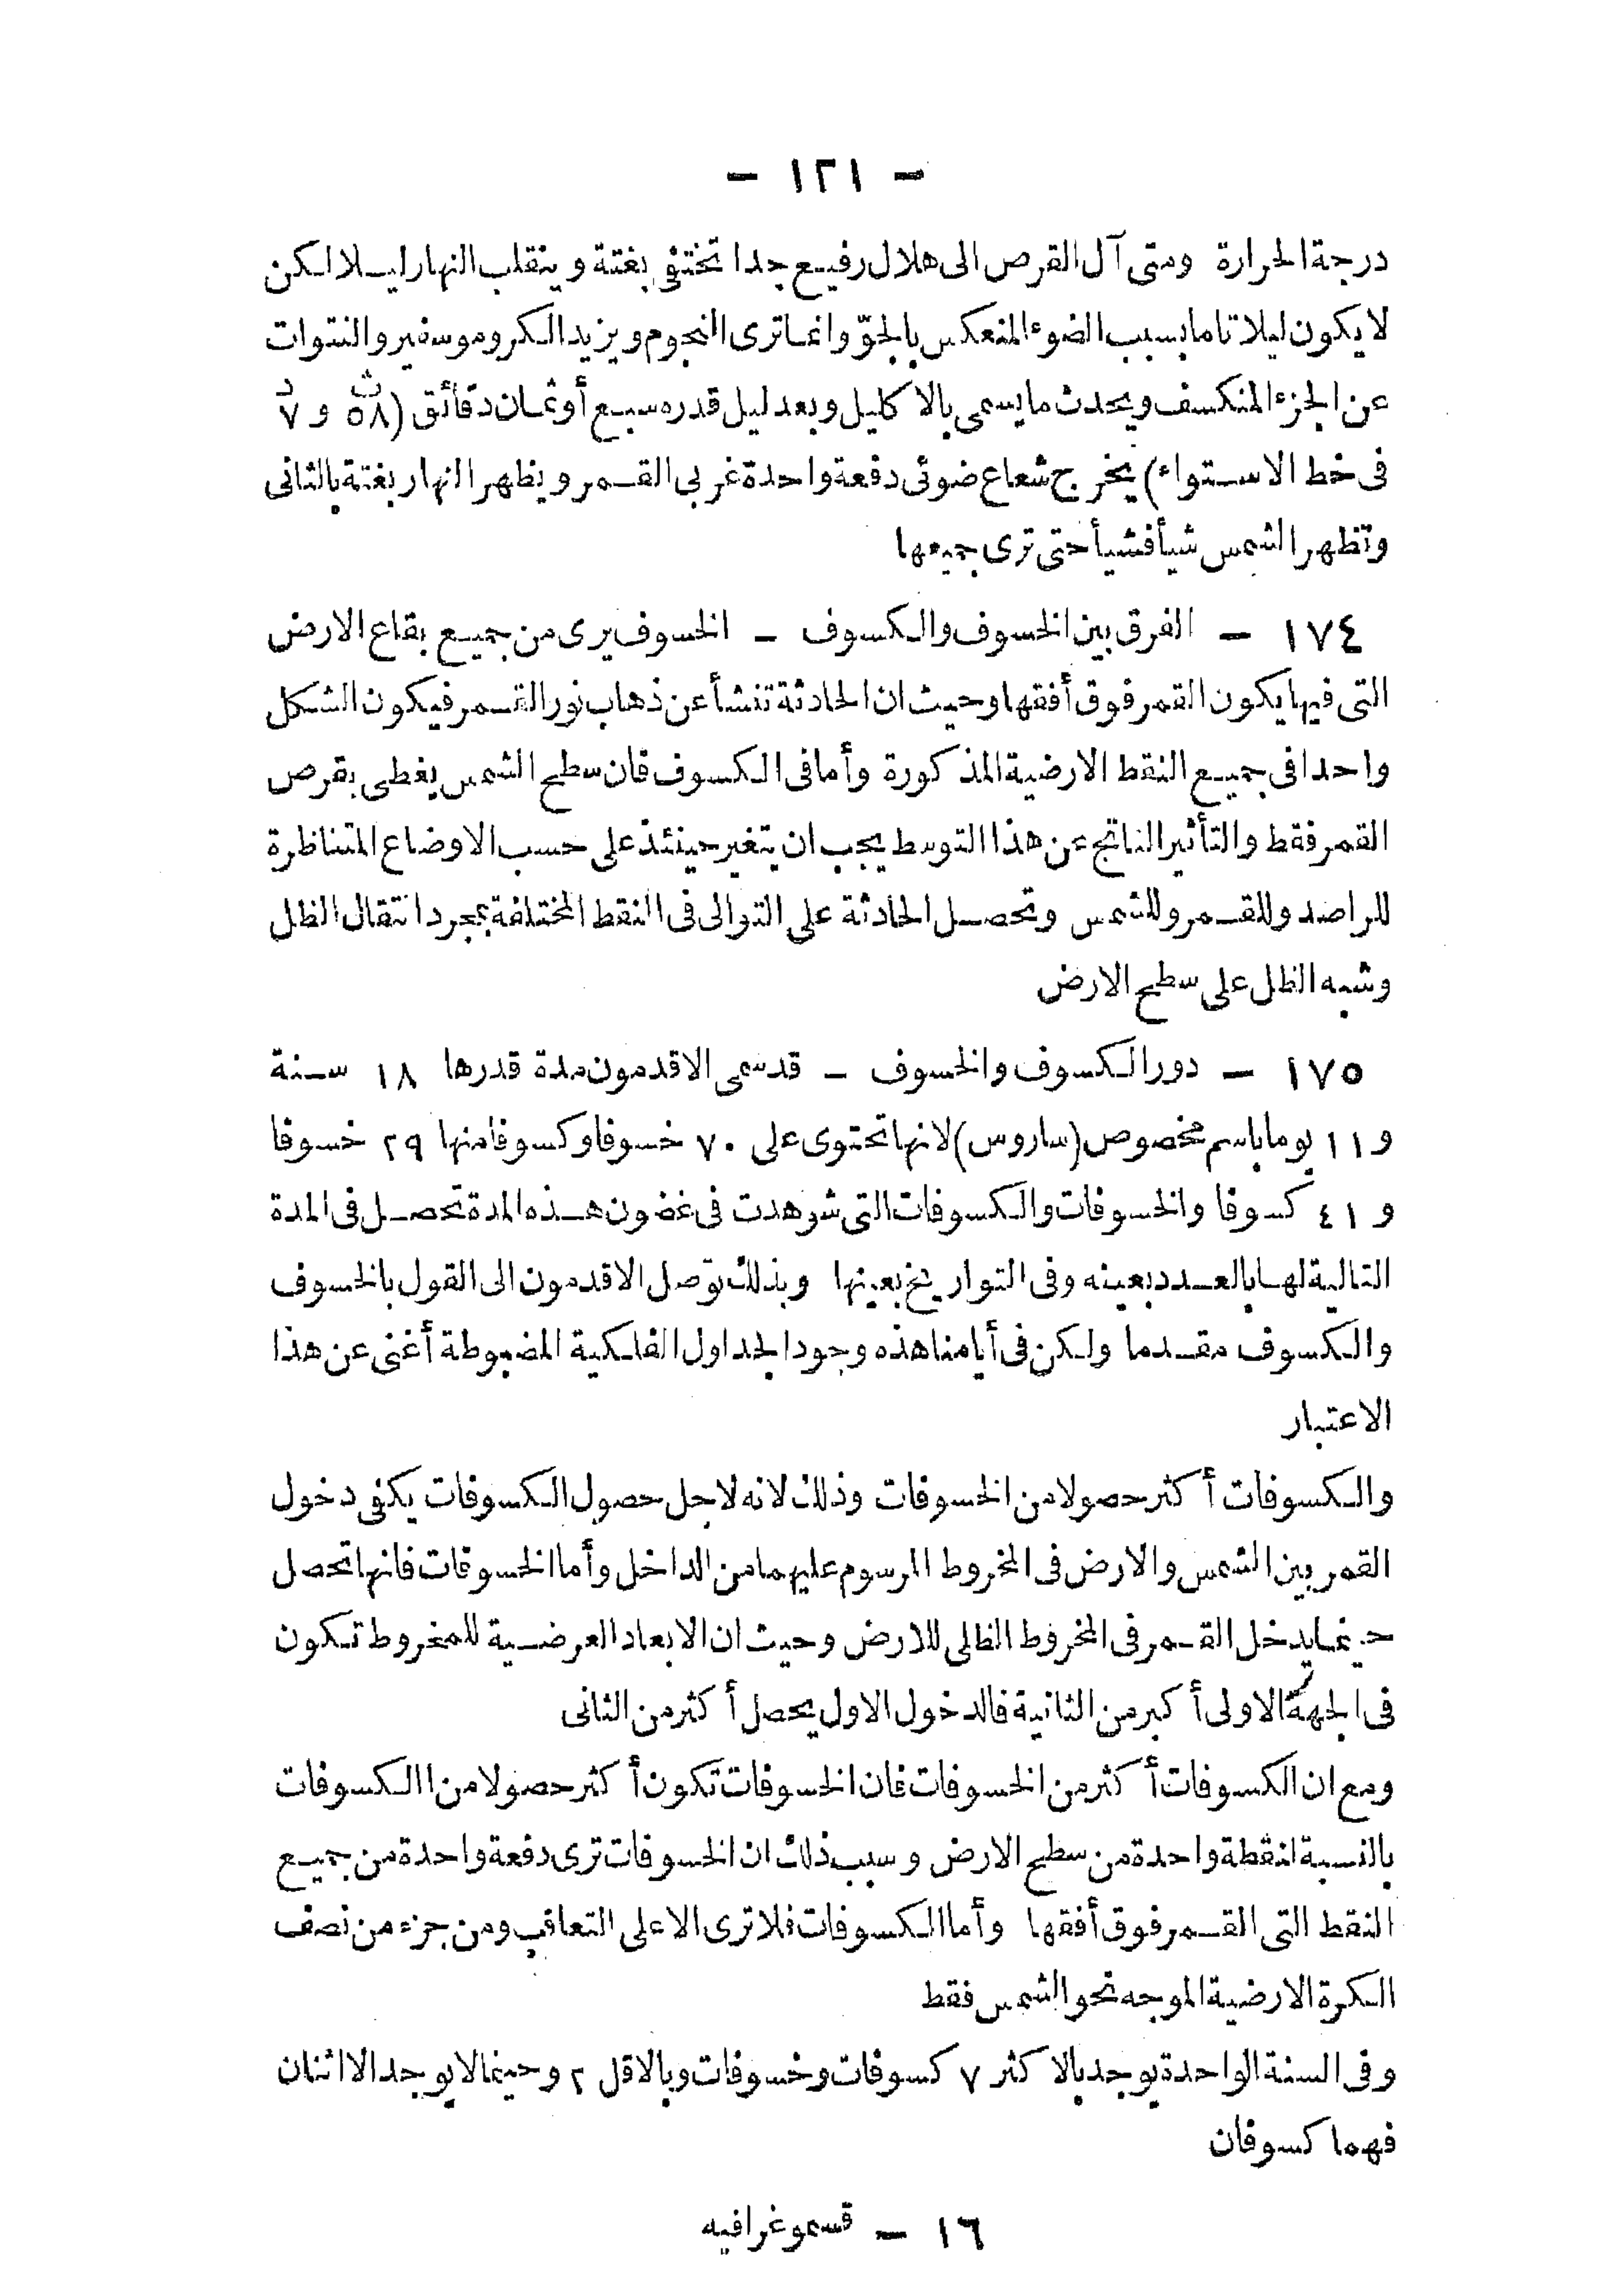 - ١٢١ -
درجة الحرارة ومتى آل القرص الى هلال رفيع جدا تختفى بغتة وينقلب النهار ليلا لكن
لا يكون ليلا تاما بسبب الضوء المنعكس بالجوّ وانما ترى النجوم ويزيد الكروموسفير والنتوات
عن الجزء المنكسف ويحدث ما يسمى بالاكليل وبعد ليل قدره سبع أو ثمان دقائق (٥٨ث و ٧د
فى خط الاستواء) يخرج شعاع ضوئى دفعة واحدة غربى القمر ويظهر النهار بغتة بالثانى
وتظهر الشمس شيأ فشيأ حتى ترى جميعها
١٧٤ - الفرق بين الخسوف والكسوف - الخسوف يرى من جميع بقاع الارض
التى فيها يكون القمر فوق أفقها وحيث ان الحادثة تنشأ عن ذهاب نور القمر فيكون الشكل
واحدا فى جميع النقط الارضية المذكورة وأما فى الكسوف فان سطح الشمس يغطى بقرص
القمر فقط والتأثير الناتج عن هذا التوسط يجب ان يتغير حينئذ على حسب الاوضاع المتناظرة
للراصد وللقمر وللشمس وتحصل الحادثة على التوالى فى النقط المختلفة بمجرد انتقال الظل
وشبه الظل على سطح الارض
١٧٥ - دور الكسوف والخسوف - قد سمى الاقدمون مدة قدرها ١٨ سنة
و ١١ يوما باسم مخصوص (ساروس) لانها تحتوى على ٧٠ خسوفا وكسوفا منها ٢٩ خسوفا
و ٤١ كسوفا والخسوفات والكسوفات التى شوهدت فى غضون هذه المدة تحصل فى المدة
التالية لها بالعدد بعينه وفى التواريخ بعينها وبذلك توّصل الاقدمون الى القول بالخسوف
والكسوف مقدما ولكن فى أيامنا هذه وجود الجداول الفلكية المضبوطة أغنى عن هذا
الاعتبار
والكسوفات أكثر حصولا من الخسوفات وذلك لانه لاجل حصول الكسوفات يكفى دخول
القمر بين الشمس والارض فى المخروط المرسوم عليهما من الداخل وأما الخسوفات فانها تحصل
حينما يدخل القمر فى المخروط الظلى للارض وحيث ان الابعاد العرضية للمخروط تكون
فى الجهة الاولى أكبر من الثانية فالدخول الاول يحصل أكثر من الثانى
ومع ان الكسوفات أكثر من الخسوفات فان الخسوفات تكون أكثر حصولا من االكسوفات
بالنسبة لنقطة واحدة من سطح الارض وسبب ذلك ان الخسوفات ترى دفعة واحدة من جميع
النقط التى القمر فوق أفقها وأما الكسوفات فلا ترى الا على التعاقب ومن جزء من نصف
الكرة الارضية الموجه نحو الشمس فقط
وفى السنة الواحدة يوجد بالاكثر ٧ كسوفات وخسوفات وبالاقل ٢ وحينما لا يوجد الا اثنان
فهما كسوفان
١٦ - قسموغرافيه